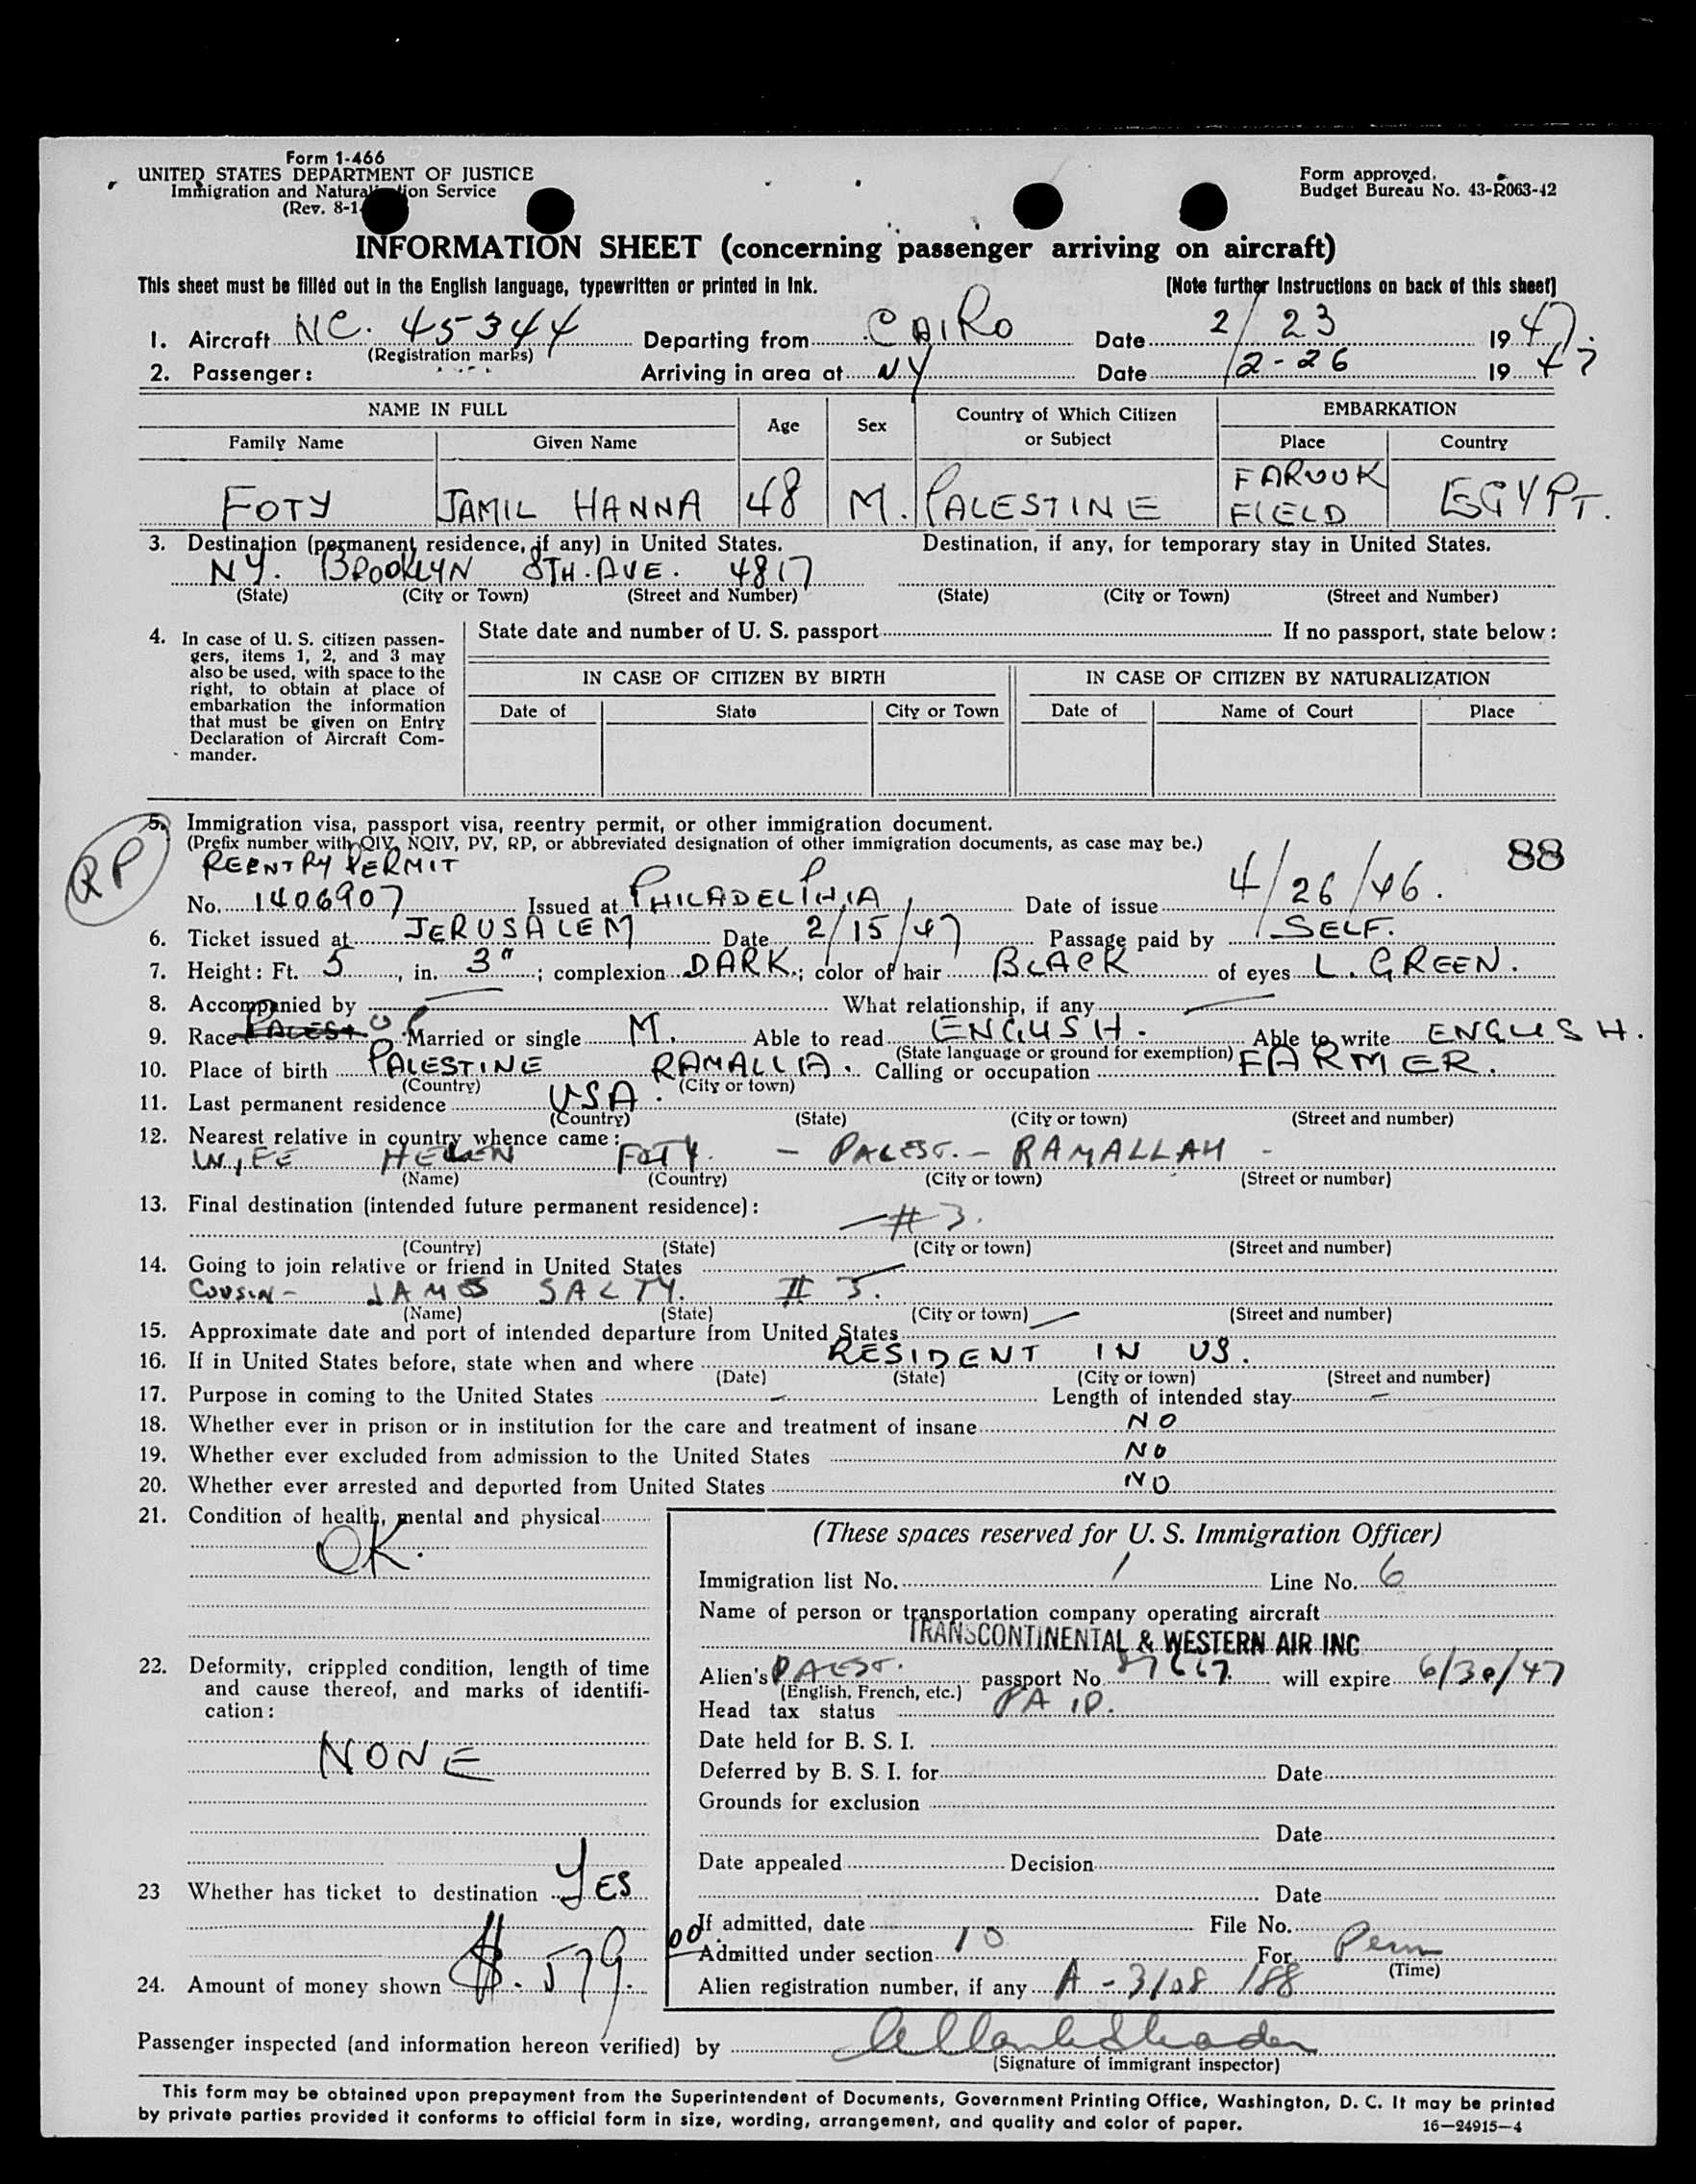 Form 1-466
UNITED STATES DEPARTMENT OF JUSTICE
Immigration and Naturalization Service
(Rev. 8-1
Form approved.
Budget Bureau No. 43-R063-42
INFORMATION SHEET (concerning passenger arriving on aircraft)
This sheet must be filled out in the English language, typewritten or printed in Ink. [Note further Instructions on back of this sheet]
1. Aircraft NC. 45344 Departing from CAIRO Date 2/23 1947.
(Registration marks)
2. Passenger: Arriving in area at NY Date 2-26 1947
NAME IN FULL Age Sex Country of Which Citizen or Subject EMBARKATION
Family Name Given Name Place Country
FOTY JAMIL HANNA 48 M. PALESTINE FAROUK FIELD EGYPT.
3. Destination (permanent residence, if any) in United States. Destination, if any, for temporary stay in United States.
NY. BROOKLYN 8TH. AVE. 4817
(State) (City or Town) (Street and Number) (State) (City or Town) (Street and Number)
4. In case of U. S. citizen passen-
gers, items 1, 2, and 3 may
also be used, with space to the
right, to obtain at place of
embarkation the information
that must be given on Entry
Declaration of Aircraft Com-
mander.
State date and number of U. S. passport If no passport, state below:
IN CASE OF CITIZEN BY BIRTH IN CASE OF CITIZEN BY NATURALIZATION
Date of State City or Town Date of Name of Court Place
RP
5. Immigration visa, passport visa, reentry permit, or other immigration document.
(Prefix number with QIV, NQIV, PV, RP, or abbreviated designation of other immigration documents, as case may be.) 88
REENTRY PERMIT
No. 1406907 Issued at PHILADELPHIA Date of issue 4/26/46.
6. Ticket issued at JERUSALEM Date 2/15/47 Passage paid by SELF.
7. Height: Ft. 5, in. 3"; complexion DARK; color of hair BLACK of eyes L. GREEN.
8. Accompanied by What relationship, if any
9. Race Married or single M. Able to read ENGLISH. Able to write ENGLISH.
(State language or ground for exemption)
10. Place of birth PALESTINE RAMALLIA. Calling or occupation FARMER.
(Country) (City or town)
11. Last permanent residence USA.
(Country) (State) (City or town) (Street and number)
12. Nearest relative in country whence came:
WIFE HELEN FOTY. - PALEST. - RAMALLAH -
(Name) (Country) (City or town) (Street or number)
13. Final destination (intended future permanent residence):
#3.
(Country) (State) (City or town) (Street and number)
14. Going to join relative or friend in United States
COUSIN - JAMES SALTY. # 3.
(Name) (State) (City or town) (Street and number)
15. Approximate date and port of intended departure from United States
16. If in United States before, state when and where RESIDENT IN US.
(Date) (State) (City or town) (Street and number)
17. Purpose in coming to the United States Length of intended stay
18. Whether ever in prison or in institution for the care and treatment of insane NO
19. Whether ever excluded from admission to the United States NO
20. Whether ever arrested and deported from United States NO
21. Condition of health, mental and physical
OK.
22. Deformity, crippled condition, length of time
and cause thereof, and marks of identifi-
cation:
NONE
23 Whether has ticket to destination YES
24. Amount of money shown $. 579. 00
(These spaces reserved for U. S. Immigration Officer)
Immigration list No. 1 Line No. 6
Name of person or transportation company operating aircraft
TRANSCONTINENTAL & WESTERN AIR INC
Alien's PALEST. passport No. 87667. will expire 6/30/47
(English, French, etc.)
Head tax status PAID.
Date held for B. S. I.
Deferred by B. S. I. for Date
Grounds for exclusion
Date
Date appealed Decision
Date
If admitted, date File No.
Admitted under section 10 For Perm
(Time)
Alien registration number, if any A-3108 188
Passenger inspected (and information hereon verified) by
(Signature of immigrant inspector)
This form may be obtained upon prepayment from the Superintendent of Documents, Government Printing Office, Washington, D. C. It may be printed
by private parties provided it conforms to official form in size, wording, arrangement, and quality and color of paper. 16—24915-4